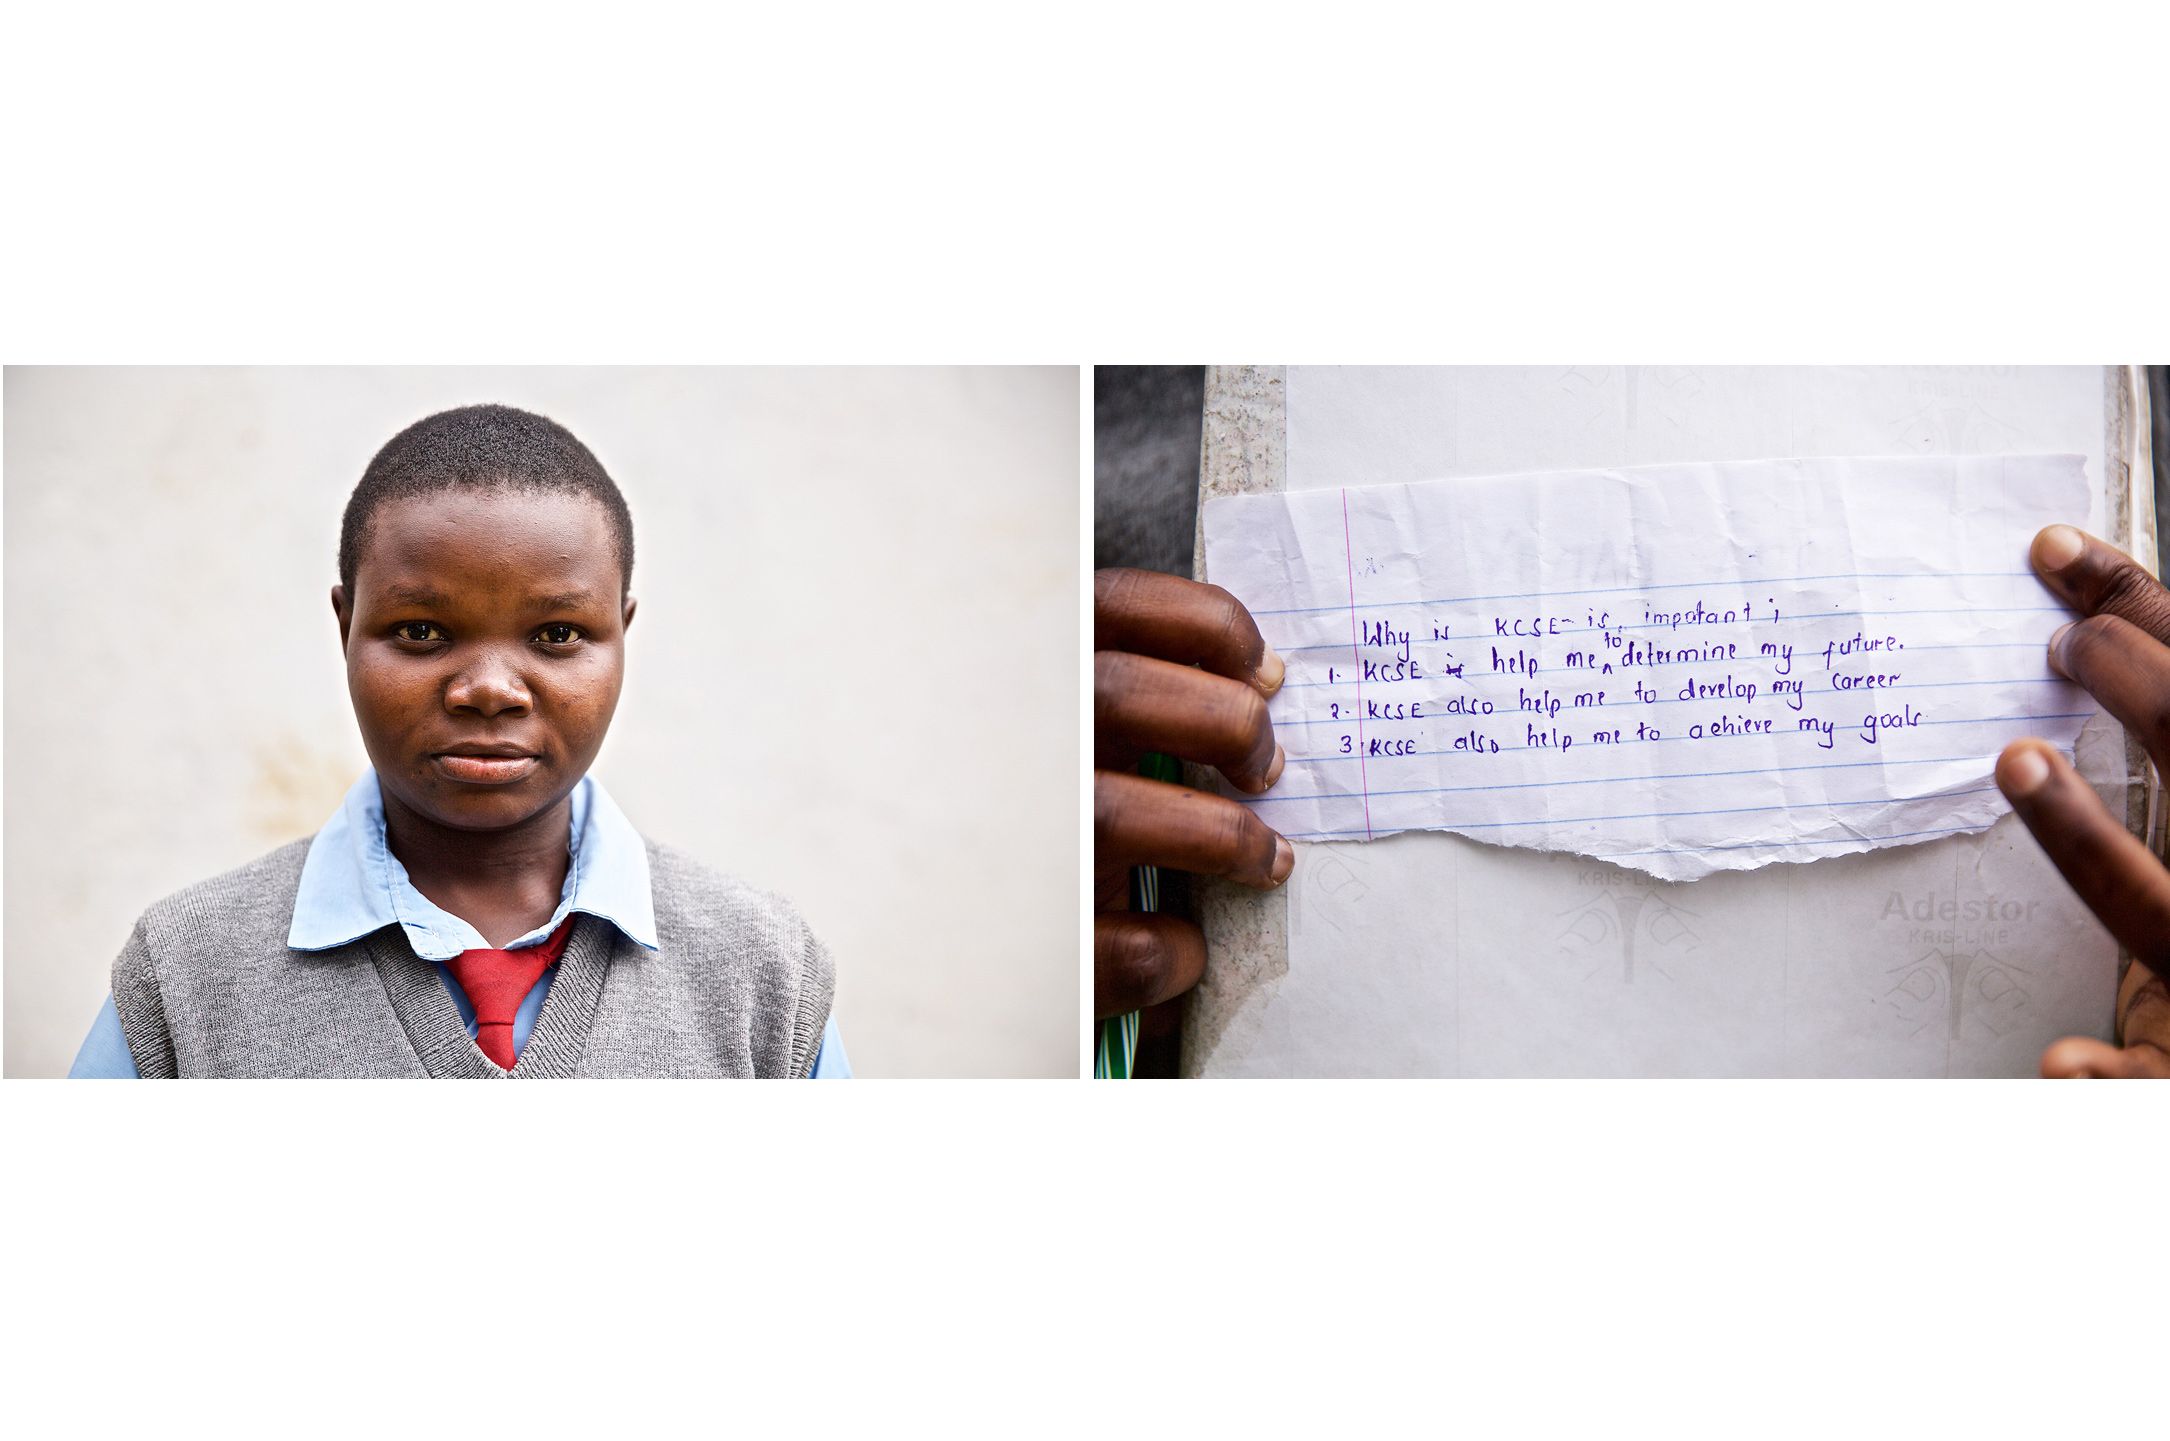 Adestor
KRIS-LINE
Why is KCSE is impotant ;
1. KCSE is help me to determine my future.
2. KCSE also help me to develop my career
3. KCSE also help me to achieve my goals
KRIS-LINE
Adestor
KRIS-LINE